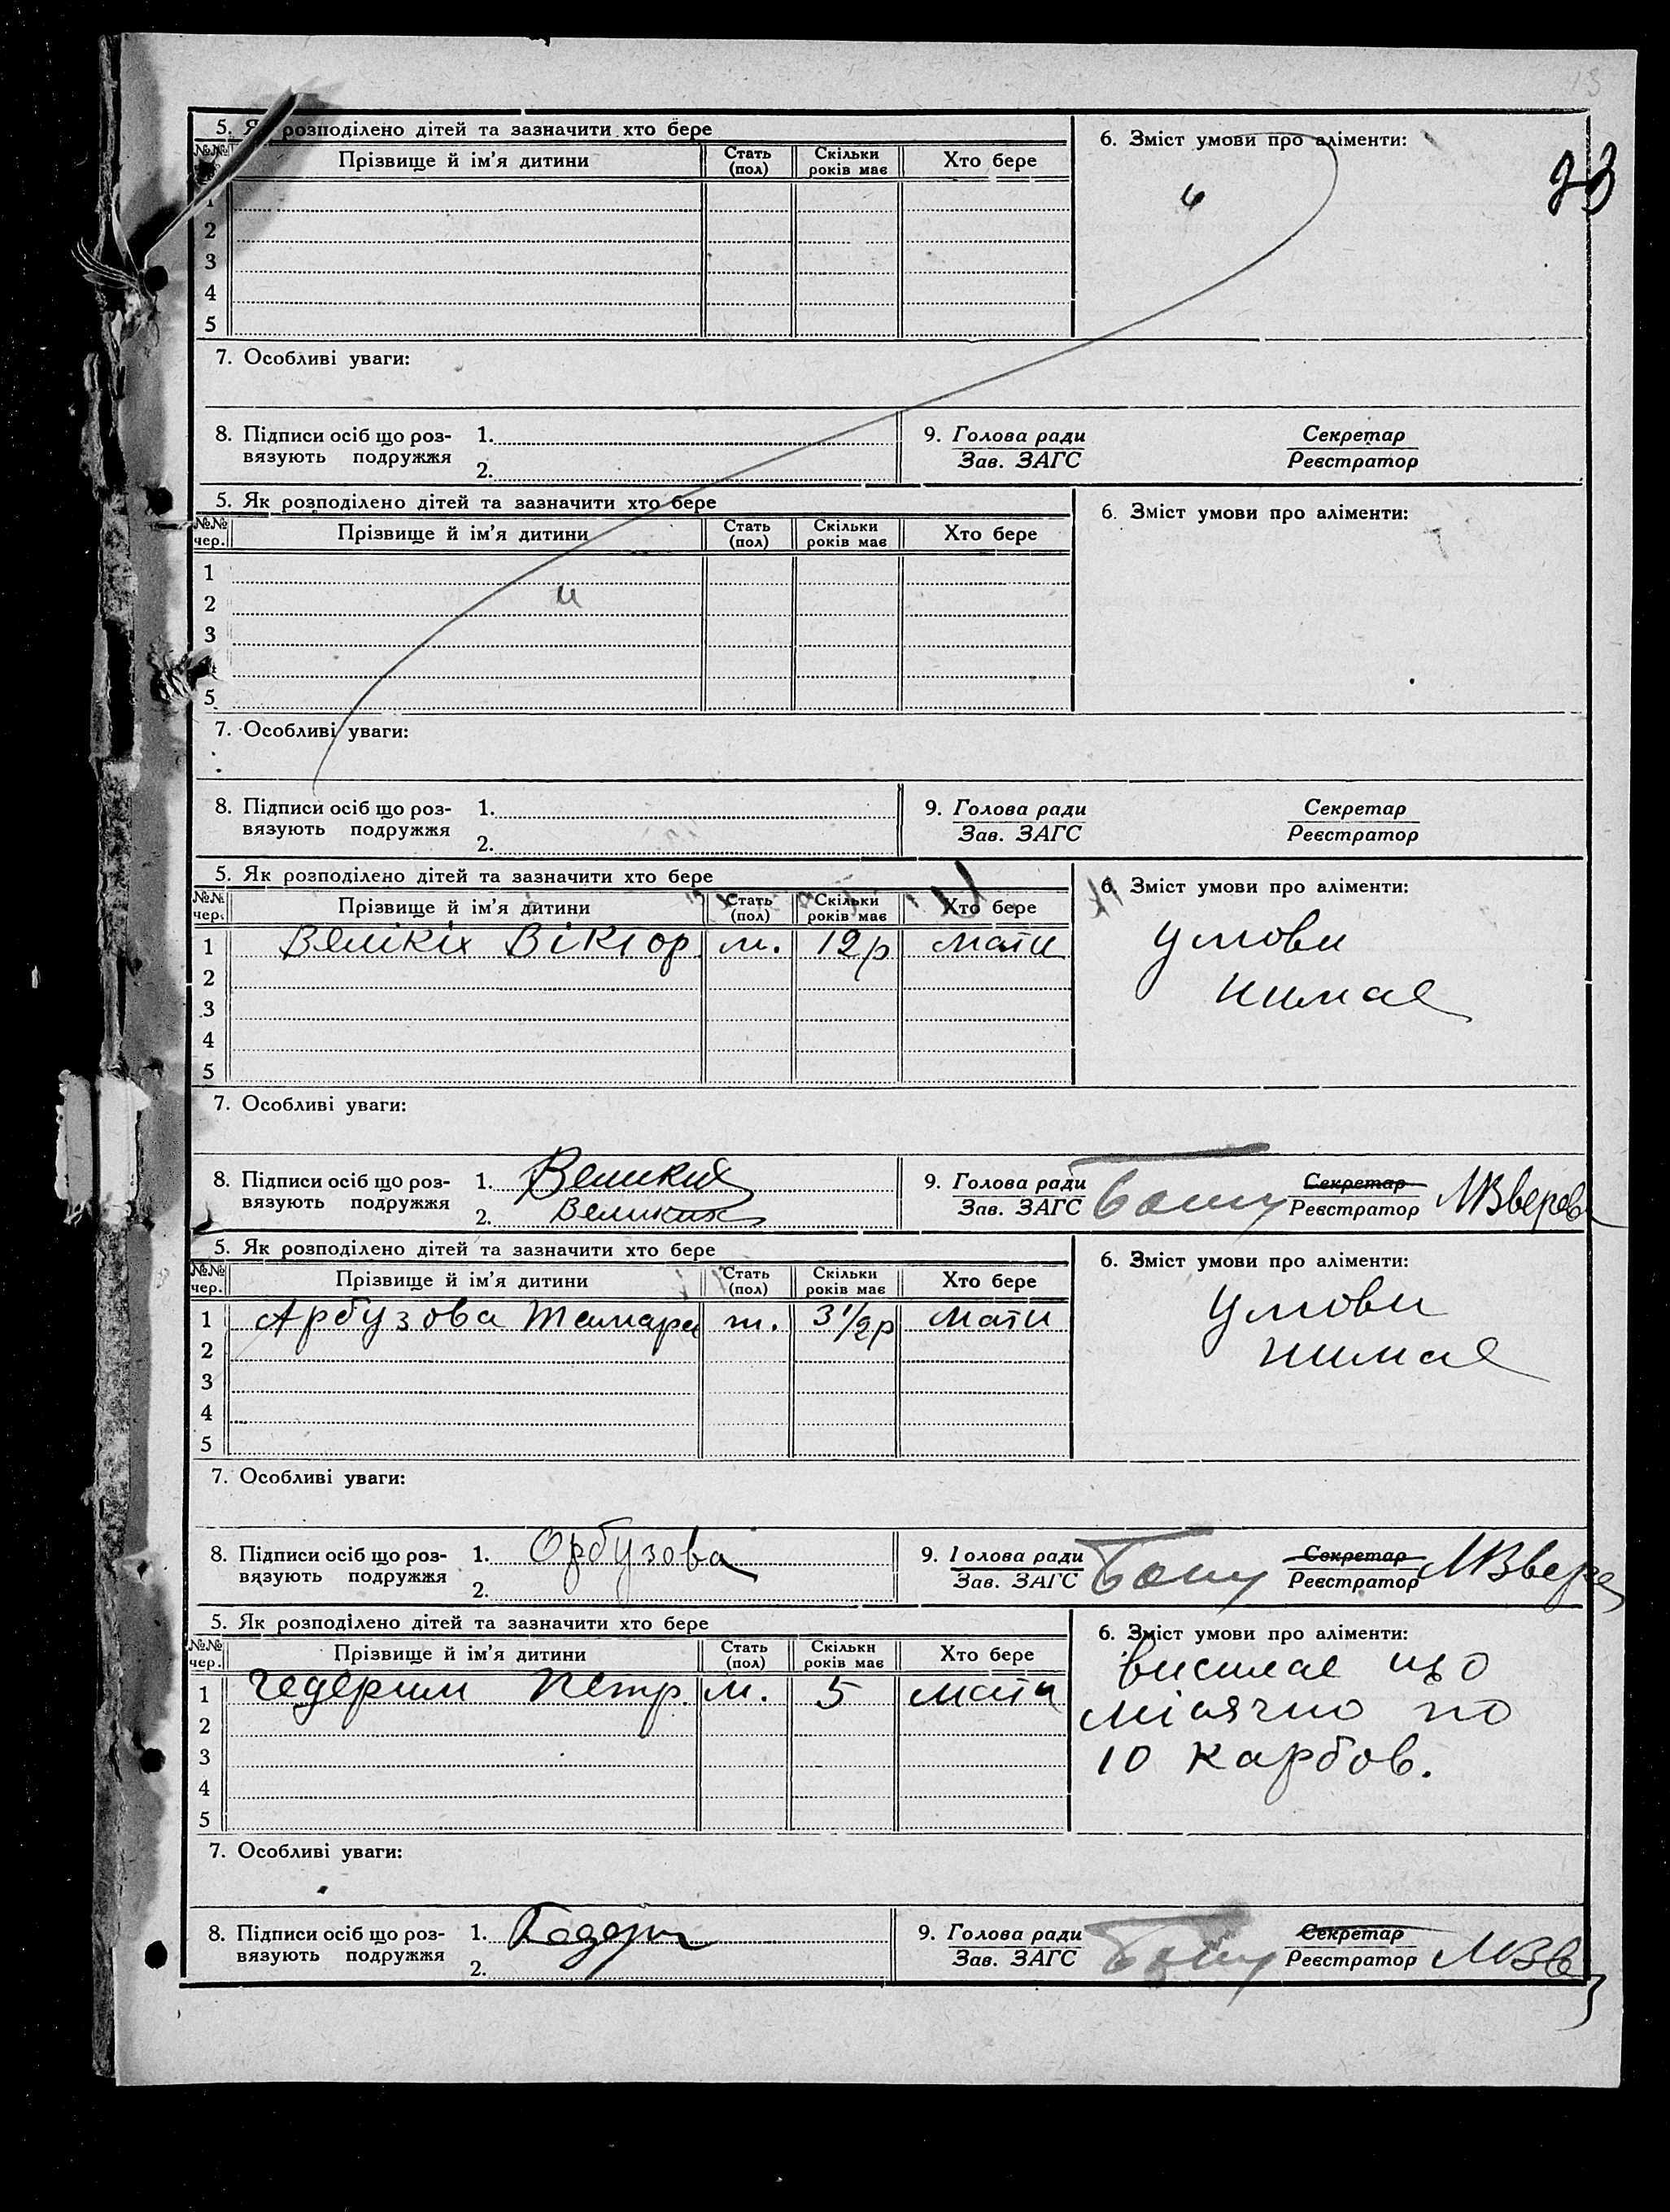 13
23
5. Як розподілено дітей та зазначити хто бере
6. Зміст умови про аліменти:
№№ Прізвище й ім'я дитини Стать (пол) Скільки років має Хто бере
1
2
3
4
5
7. Особливі уваги:
8. Підписи осіб що роз- 1. 9. Голова ради Секретар
вязують подружжя 2. Зав. ЗАГС Реєстратор
5. Як розподілено дітей та зазначити хто бере
6. Зміст умови про аліменти:
№№ чер. Прізвище й ім'я дитини Стать (пол) Скільки років має Хто бере
1
2
3
5
7. Особливі уваги:
8. Підписи осіб що роз- 1. 9. Голова ради Секретар
вязують подружжя 2. Зав. ЗАГС Реєстратор
5. Як розподілено дітей та зазначити хто бере
6. Зміст умови про аліменти:
№№ чер. Прізвище й ім'я дитини Стать (пол) Скільки років має Хто бере
1 Велікіх Віктор м. 12р мати
умови
нимає
2
3
4
5
7. Особливі уваги:
8. Підписи осіб що роз- 1. Великих 9. Голова ради Секретар
вязують подружжя 2. Великих Зав. ЗАГС Реєстратор МЗверева
5. Як розподілено дітей та зазначити хто бере
6. Зміст умови про аліменти:
№№ чер. Прізвище й ім'я дитини Стать (пол) Скільки років має Хто бере
1 Арбузова Тамара ж. 3 1/2р мати
умови
нимає
2
3
4
5
7. Особливі уваги:
8. Підписи осіб що роз- 1. Орбузова 9. Голова ради Секретар
вязують подружжя 2. Зав. ЗАГС Реєстратор МЗвере
5. Як розподілено дітей та зазначити хто бере
6. Зміст умови про аліменти:
№№ чер. Прізвище й ім'я дитини Стать (пол) Скільки років має Хто бере
1 Петр. м. 5 мати
висилає що
місячно по
10 карбов.
2
3
4
5
7. Особливі уваги:
8. Підписи осіб що роз- 1. 9. Голова ради Секретар
вязують подружжя 2. Зав. ЗАГС Реєстратор МЗв